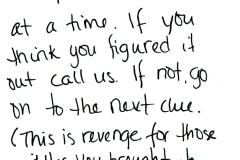 at a time. If you
think you figured it
out call us. If not, go
on to the next clue.
(This is revenge for those
you brought